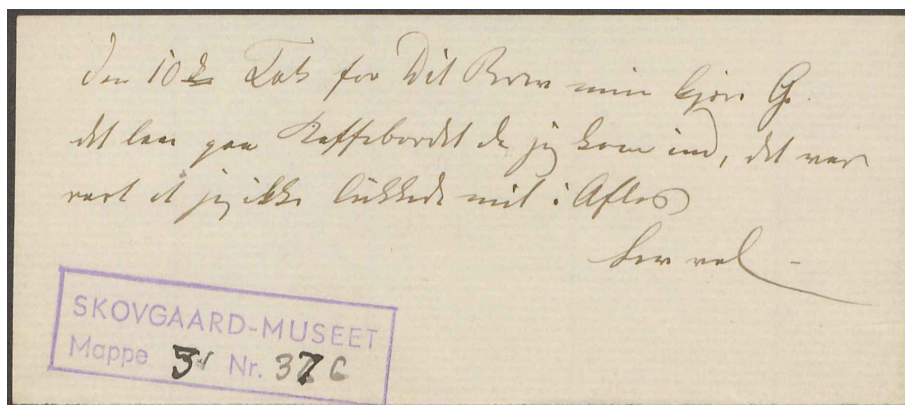 Den 10de Tak for Dit Brev min kjære G.
det laae paa Kaffebordet da jeg kom ind, det var
rart at jeg ikke lukkede mit i Aftes
Lev vel -
SKOVGAARD-MUSEET
Mappe 3 Nr. 37 C